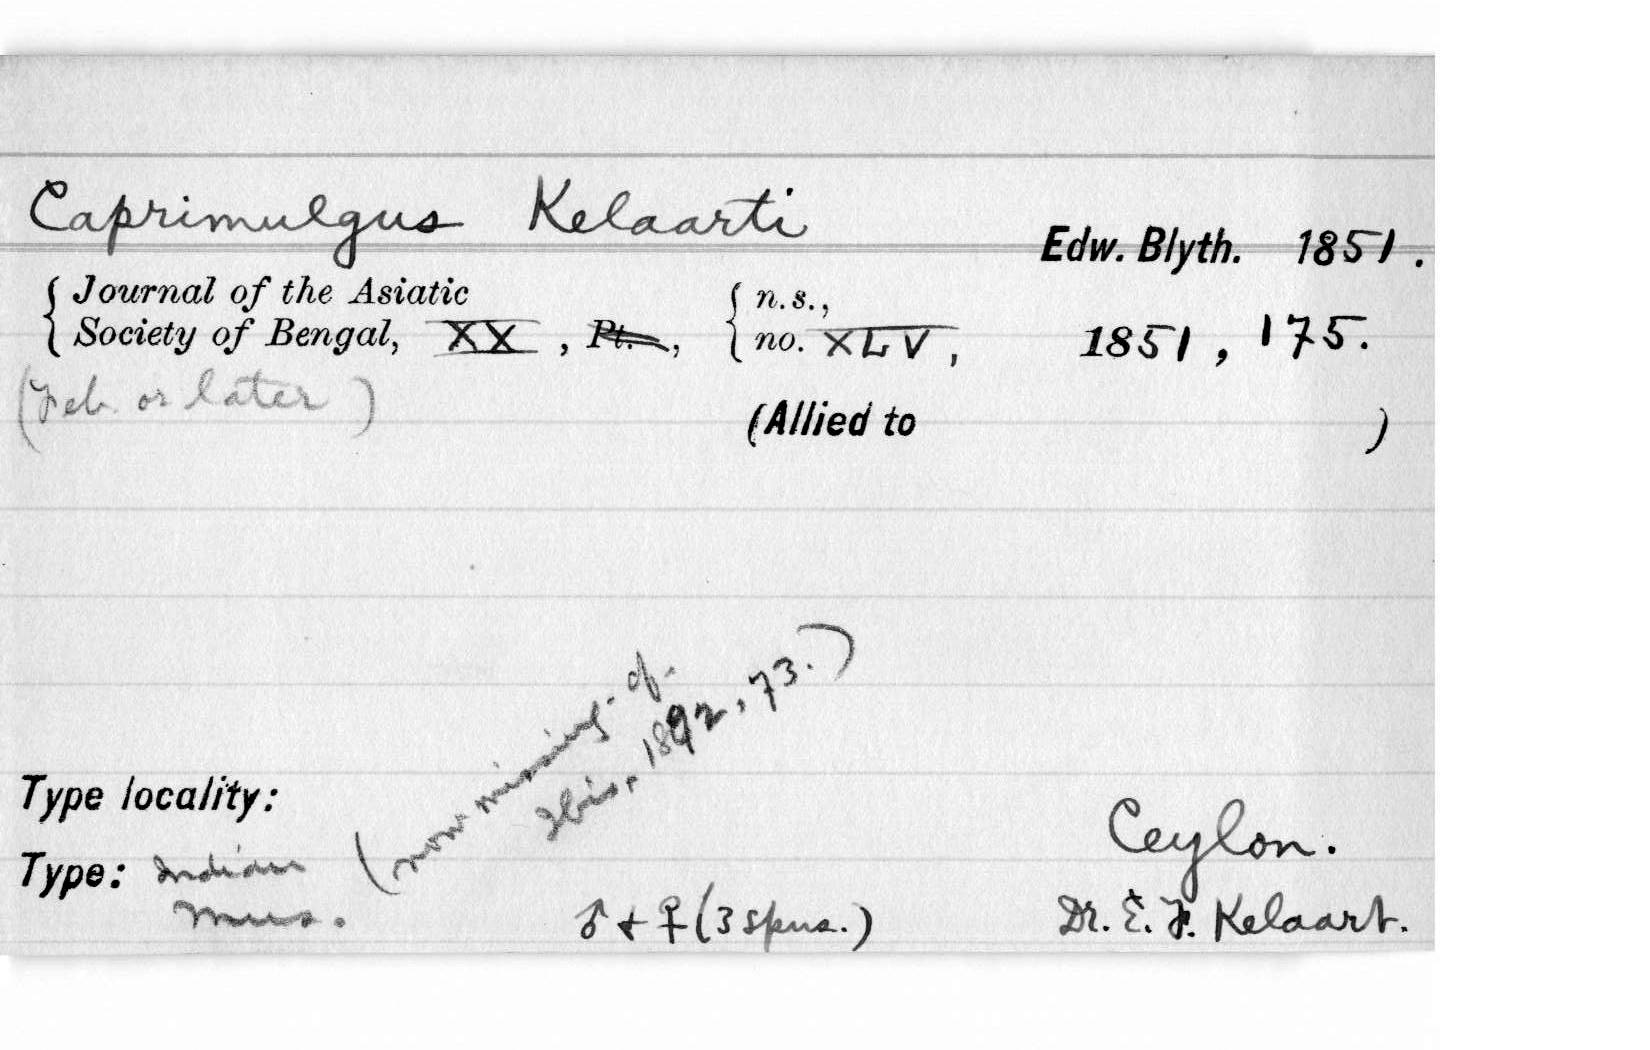 Caprimulgus Kelaarti
Edw. Blyth. 1851.
{ Journal of the Asiatic { n.s.,
Society of Bengal, XX, Pt., no. XLV, 1851, 175.
(Feb. or later)
(Allied to )
(now missing. cf.
Ibis, 1892, 73.)
Type locality: Ceylon.
Type: Indian
Mus. ♂ + ♀ (3 spns.) Dr. E. F. Kelaart.